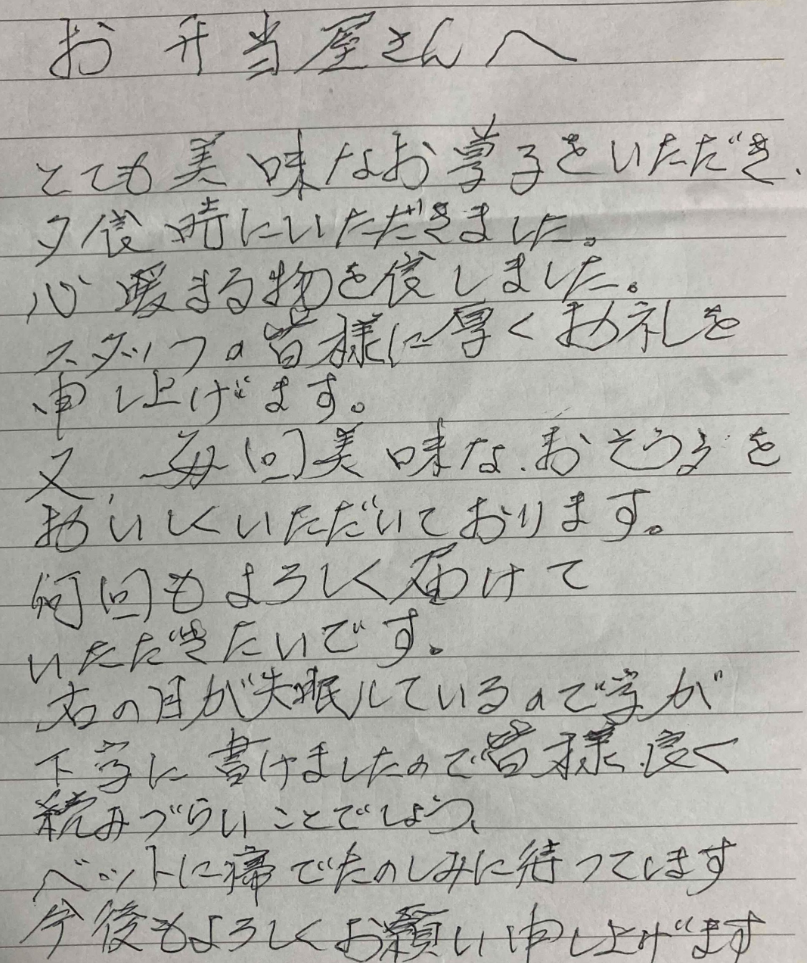 お弁当屋さんへ
とても美味なお菓子をいただき、
夕食時にいただきました。
心暖まる物を食しました。
スタッフの皆様に厚くお礼を
申し上げます。
又、毎回美味な、おそうざを
おいしくいただいております。
何回もよろしく届けて
いただきたいです。
右の目が失眠しているので字が
下字に書けましたので皆様、良く
読みづらいことでしょう、
ベットに寝でたのしみに待っています
今後もよろしくお願い申し上げます